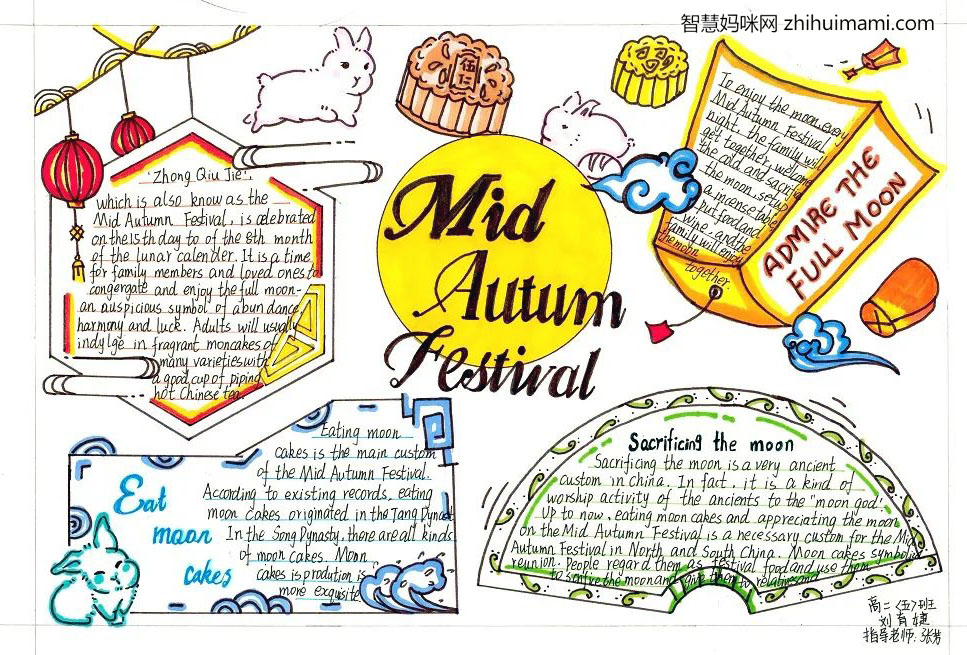 智慧妈咪网 zhihuimami.com
Mid
Autum
Festival
'Zhong Qiu Jie'.
which is also know as the
Mid Autumn Festival, is celebrated
on the 15th day to of the 8th month
of the lunar calender. It is a time
for family members and loved ones to
congergate and enjoy the full moon-
an auspicious symbol of abundance,
harmony and luck. Adults will usually
indylge in fragrant moncakes of
many varieties with
a good cup of piping
hot Chinese tea.
伍仁
To enjoy the moon, every
Mid Autumn Festival
night, the family will
get together, welcome
the cold and sacrifice
the moon, set up
a incense table
put food and
wine, and the
family will enjoy
the moon
together.
ADMIRE THE
FULL MOON
Eat
moon
cakes
Eating moon
cakes is the main custom
of the Mid Autumn Festival.
According to existing records, eating
moon cakes originated in the Tang Dynas
In the Song Dynasty, there are all kinds
of moon cakes. Moon
cakes is prodution is
more exquisite
Sacrificing the moon
Sacrificing the moon is a very ancient
custom in china. In fact, it is a kind of
worship activity of the ancients to the "moon god".
Up to now, eating moon cakes and appreciating the moon
on the Mid Autumn Festival is a necessary custom for the Mid
Autumn Festival in North and South China. Moon cakes symbolize
reunion. People regard them as festival food and use them
to the moon and give them to relatives and
高二〈五〉班
刘育婕
指导老师:张芳